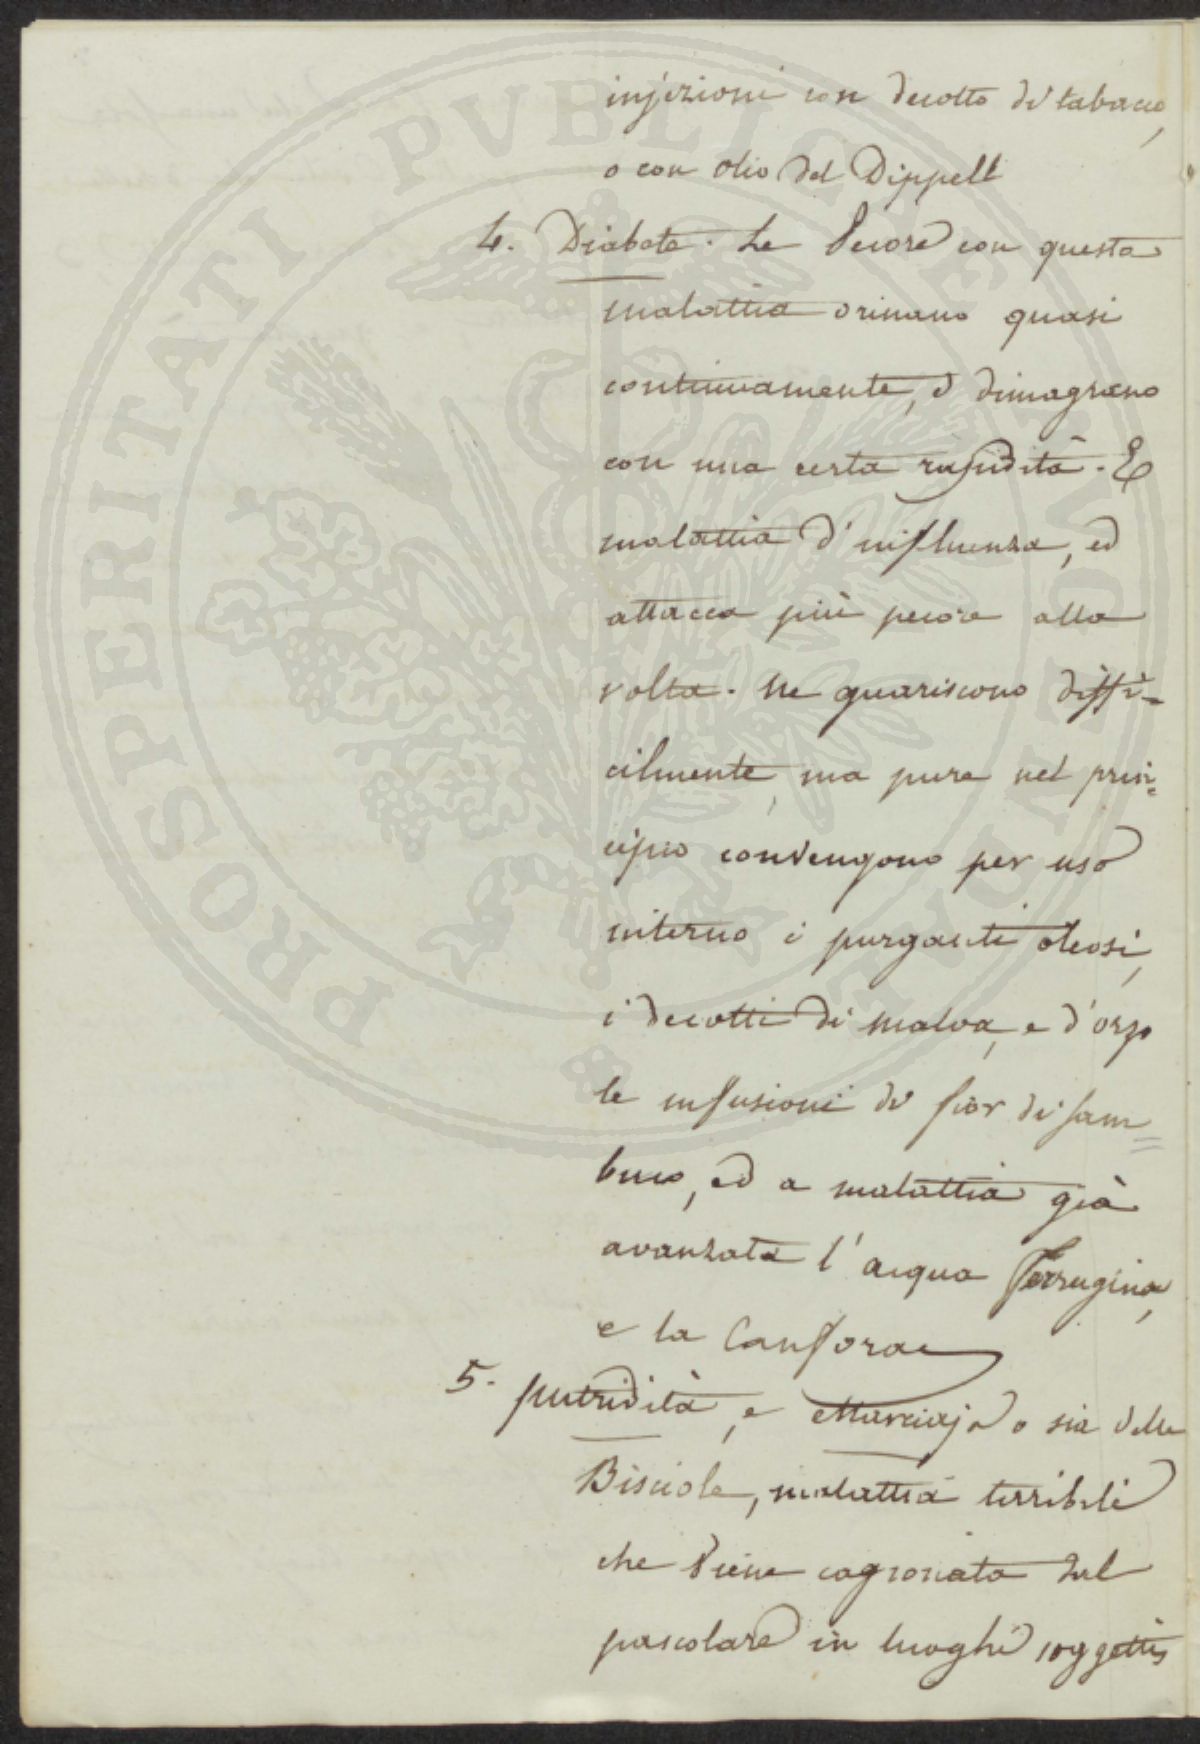 injezioni con decotto di tabacco,
o con olio del Dippell
4. Diabete. Le Pecore con questa
malattia orinano quasi
continuamente, e dimagrano
con una certa rapidità. E
malattia d'influenza, ed
attacca più pecore alla
volta. Ne guariscono diffi=
cilmente, ma pure nel prin=
cipio convengono per uso
interno i purganti oleosi,
i decotti di malva, e d'orzo
le infusioni di fior di sam=
buco, ed a malattia già
avanzata l'acqua ferrugina,
e la Canfora
5. putridità, e Marciaja o sia delle
Bisciole, malattia terribile
che viene cagionata dal
pascolare in luoghi soggetti
PROSPERITATI PVBLICAE